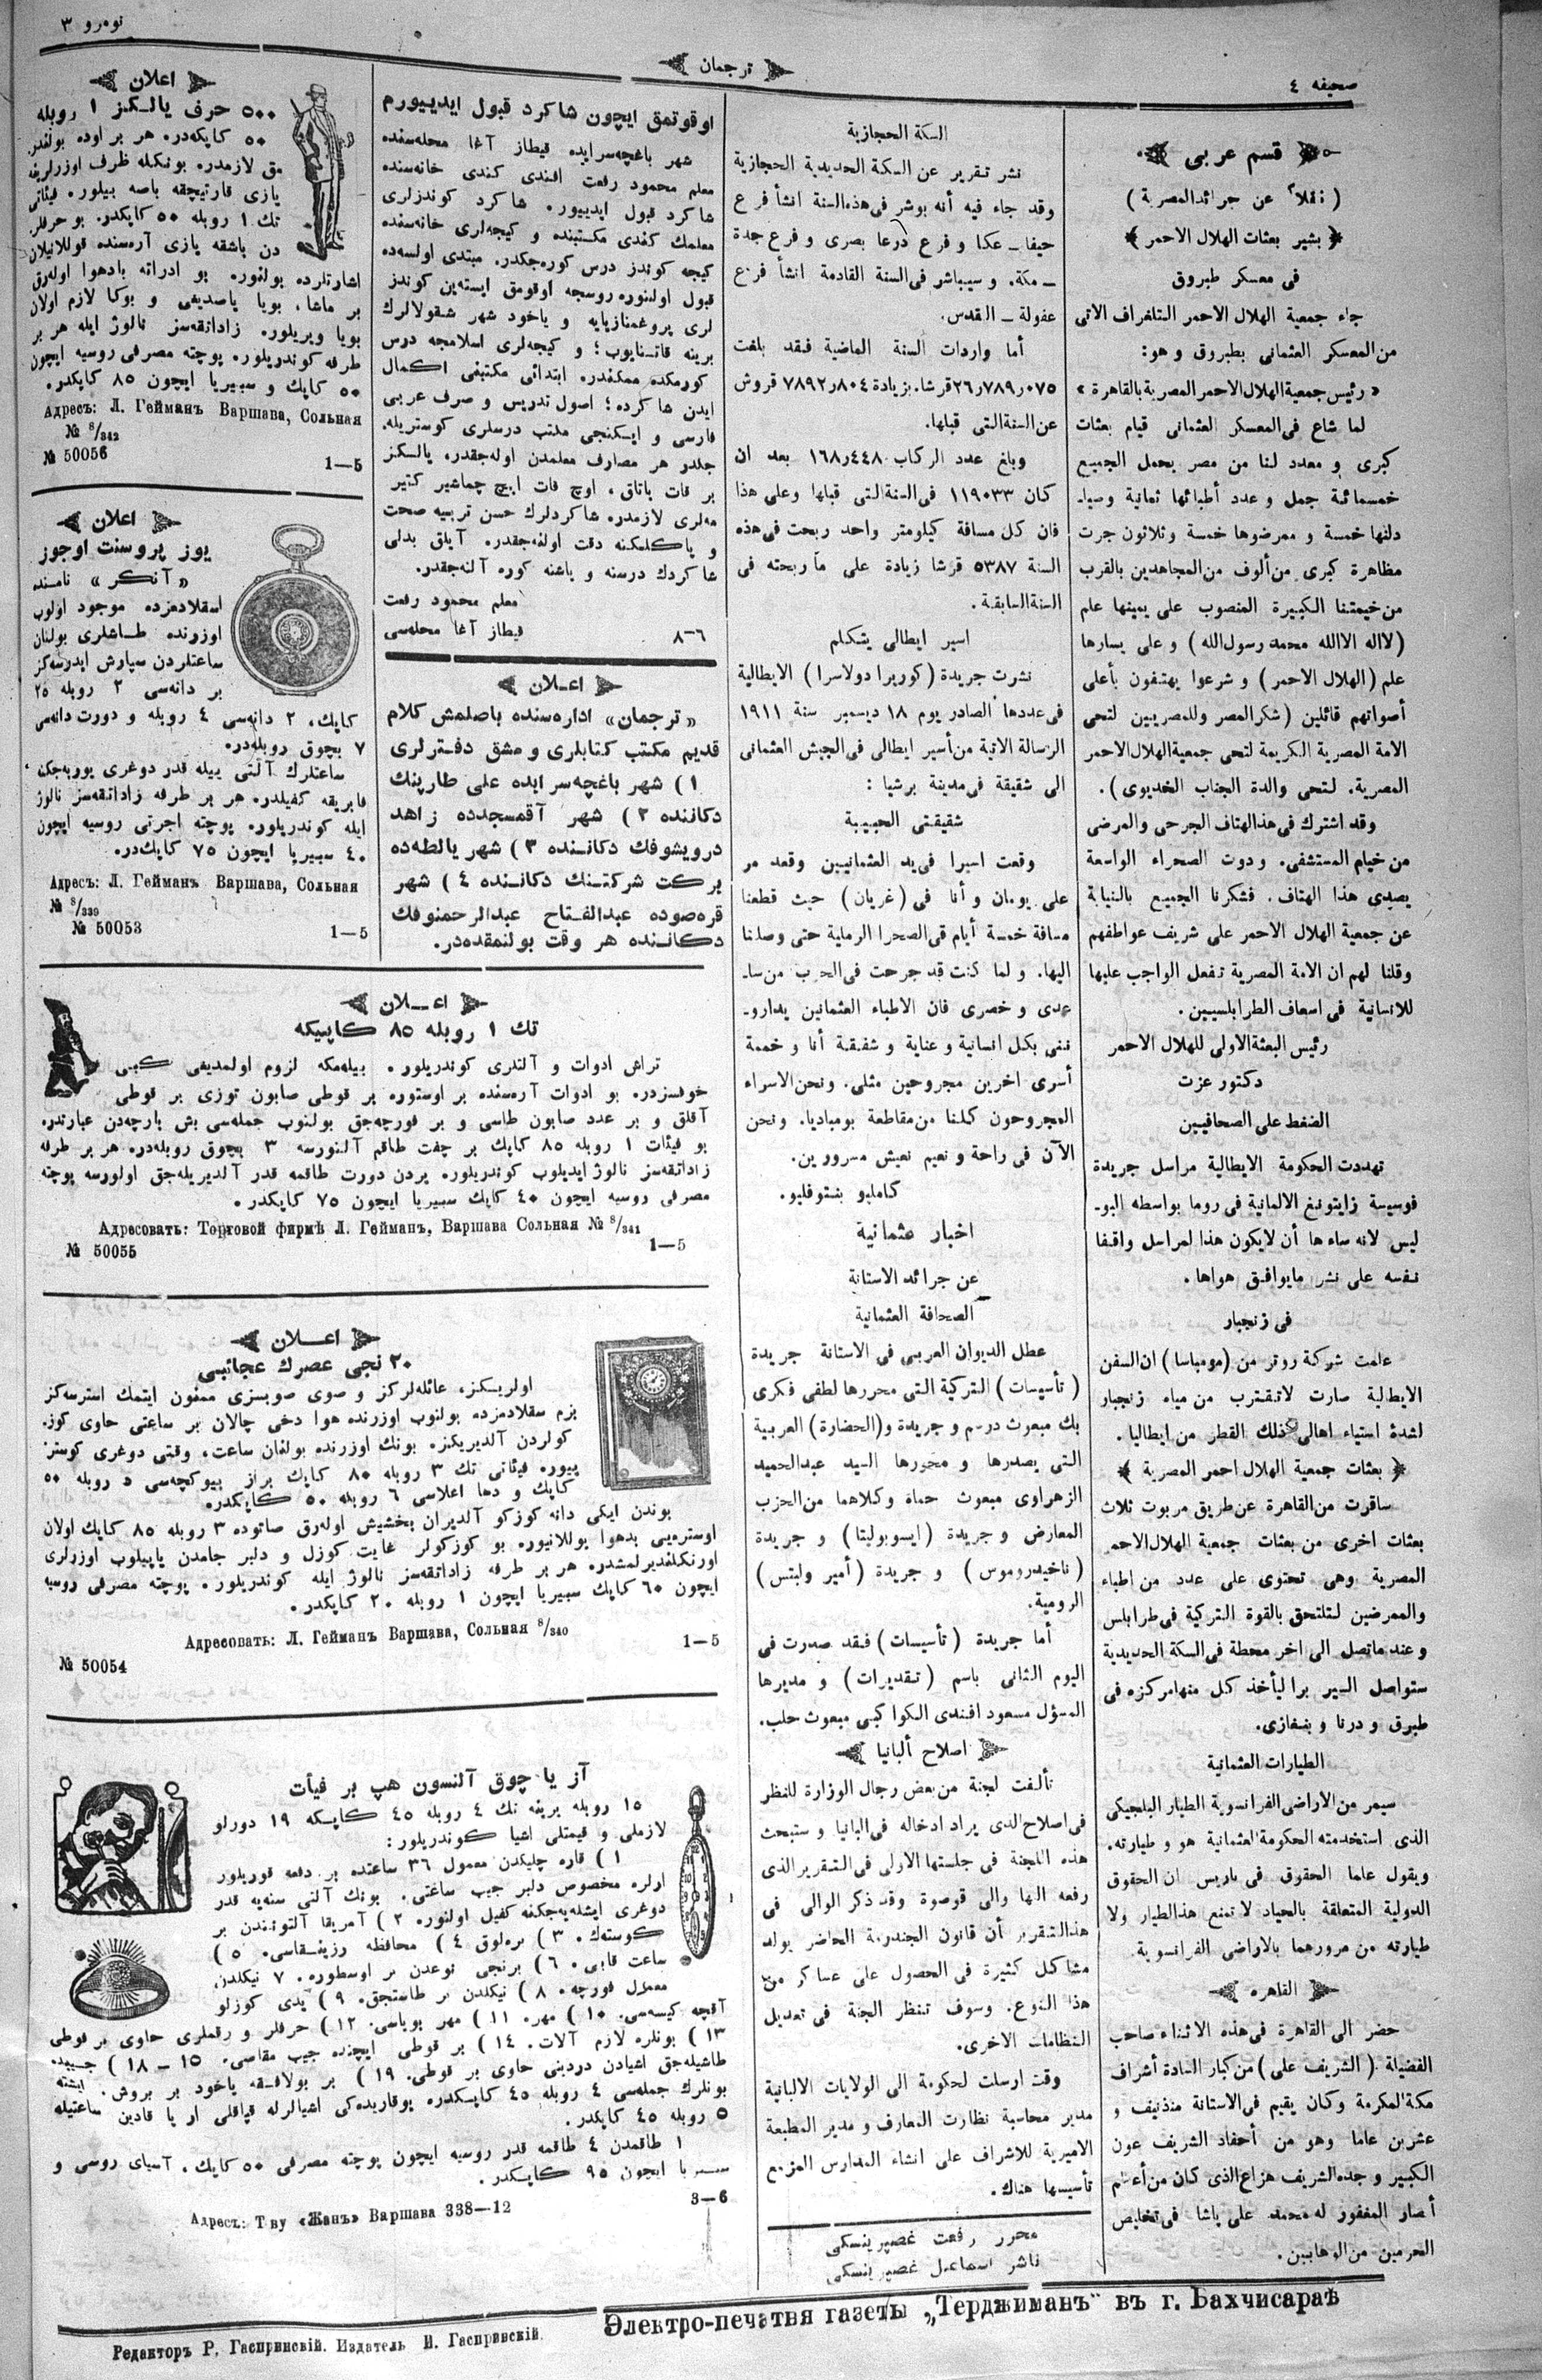 صحيفه ٤
ترجمان
نومرو ٣
قسم عربى
( نقلاً عن جرائد المصرية )
﴿ بشير بعثات الهلال الاحمر ﴾
فى معسكر طبروق
جاء جمعية الهلال الاحمر التلغراف الآتى
من المعسكر العثمانى بطبروق وهو:
« رئيس جمعية الهلال الاحمر المصرية بالقاهرة »
لما شاع فى المعسكر العثمانى قيام بعثات
كبرى و معدد لنا من مصر يحمل الجميع
خمسمائة جمل و عدد أطبائها ثمانية وصيا-
دلتها خمسة و ممرضوها خمسة و ثلاثون جرت
مظاهرة كبرى من ألوف من المجاهدين بالقرب
من خيمتنا الكبيرة المنصوب على يمينها علم
(لا اله الا الله محمد رسول الله) و على يسارها
علم (الهلال الاحمر) و شرعوا يهتفون بأعلى
أصواتهم قائلين (شكر المصر وللمصريين لتحى
الامة المصرية الكريمة لتحى جمعية الهلال الاحمر
المصرية. لتحى والدة الجناب الخديوى).
وقد اشترك فى هذ الهتاف الجرحى والمرضى
من خيام المستشفى. ودوت الصحراء الواسعة
بصدى هذا الهتاف. فشكرنا الجميع بالنيابة
عن جمعية الهلال الاحمر على شريف عواطفهم
وقلنا لهم ان الامة المصرية تفعل الواجب عليها
للانسانية فى اسعاف الطرابلسيين.
رئيس البعثة الاولى للهلال الاحمر
دكتور عزت
الضغط على الصحافيين
تهددت الحكومة الايطالية مراسل جريدة
فوسيسة زايتونغ الالمانية فى روما بواسطه البو-
ليس لانه ساءها أن لا يكون هذا لمراسل واقفا
نفسه على نشر ما يوافق هواها.
فى زنجبار
علمت شركة روتر من (مومباسا) ان السفن
الايطالية صارت لا تقترب من مياه زنجبار
لشدة استياء اهالى ذلك القطر من ايطاليا.
﴿ بعثات جمعية الهلال احمر المصرية ﴾
سافرت من القاهرة عن طريق مريوت ثلاث
بعثات اخرى من بعثات جمعية الهلال الاحمر
المصرية وهى تحتوى على عدد من اطباء
والممرضين لتلتحق بالقوة التركية فى طرابلس
وعند ما تصل الى اخر محطة فى السكة الحديدية
ستواصل السير برا ليأخذ كل منها مركزه فى
طبرق و درنا و بنغازى.
الطيارات العثمانية
سيمر من الاراضى الفرانسوية الطيار البلجيكى
الذى استخدمته الحكومة العثمانية هو و طيارته.
ويقول علما الحقوق فى باريس ان الحقوق
الدولية المتعلقة بالحياد لا تمنع هذ الطيار ولا
طيارته من مرورهما بالاراضى الفرانسوية.
القاهره
حضر الى القاهرة فى هذه الاثناء صاحب
الفضيلة (الشريف على) من كبار السادة أشراف
مكة المكرمة وكان يقيم فى الاستانة منذ نيف و
عشرين عاما وهو من أحفاد الشريف عون
الكبير و جده الشريف هزاع الذى كان من أعظم
أنصار المغفور له محمد على باشا فى تخليص
الحرمين من الوهابيين.
السكة الحجازية
نشر تقرير عن السكة الحديدية الحجازية
وقد جاء فيه أنه بوشر فى هذه السنة انشأ فرع
حيفا - عكا و فرع درعا بصرى و فرع جدة
- مكة. و سيباشر فى السنة القادمة انشأ فرع
عفولة - القدس.
أما واردات السنة الماضية فقد بلغت
٢٦٫٧٨٩٫٠٧٥ قرشا. بزيادة ٧٨٩٢٫٨٠٤ قروش
عن السنة التى قبلها.
وبلغ عدد الركاب ١٦٨٫٤٤٨ بعد ان
كان ١١٩٠٣٣ فى السنة التى قبلها وعلى هذا
فان كل مسافة كيلومتر واحد ربحت فى هذه
السنة ٥٣٨٧ قرشا زيادة على ما ربحته فى
السنة السابقة.
اسير ايطالى يتكلم
نشرت جريدة (كوريرا دولاسرا) الايطالية
فى عددها الصادر يوم ١٨ ديسمبر سنة ١٩١١
الرسالة الاتية من أسير ايطالى فى الجيش العثمانى
الى شقيقة فى مدينة برشيا:
شقيقتى الحبيبة
وقعت اسيرا فى يد العثمانيين وقعد مر
على يومان و أنا فى (غريان) حيث قطعنا
مسافة خمسة أيام فى الصحرا الرملية حتى وصلنا
اليها. و لما كنت قد جرحت فى الحرب من سا-
عدى و خصرى فان الاطباء العثمانين يدارو-
ننى بكل انسانية و عناية و شفيقية أنا و خمسة
أسرى اخرين مجروحين مثلى. ونحن الاسراء
المجروحون كلنا من مقاطعة بومباديا. ونحن
الآن فى راحة و نعيم نعيش مسرورين.
كامليو بنتوفليو.
اخبار عثمانية
عن جرائد الاستانة
الصحافة العثمانية
عطل الديوان العربى فى الاستانة جريدة
(تأسيسات) التركية التى محررها لطفى فكرى
بك مبعوث درسم و جريدة و(الحضارة) العربية
التى يصدرها و محررها السيد عبدالحميد
الزهراوى مبعوث حماة وكلاهما من الحزب
المعارض و جريدة (ايسوبوليتا) و جريدة
(ناخيدروموس) و جريدة (أمير وليتس)
الرومية.
أما جريدة (تأسيسات) فقد صدرت فى
اليوم الثانى باسم (تقديرات) و مديرها
المسؤل مسعود افندى الكواكبى مبعوث حلب.
اصلاح ألبانيا
تألفت لجنة من بعض رجال الوزارة للنظر
فى اصلاح الدى يراد ادخاله فى البانيا و ستبحث
هذه اللجنة فى جلستها الاولى فى التقرير الذى
رفعه الها والى قوصوة وقد ذكر الوالى فى
هذ التقرير أن قانون الجندرمة الحاضر يولد
مشاكل كثيرة فى الحصول على عساكر من
هذا النوع. وسوف تنظر الجنة فى تعديل
النظامات الاخرى.
وقت ارسلت لحكومة الى الولايات الالبانية
مدير محاسبة نظارت المعارف و مدير المطبعة
الاميرية للاشراف على انشاء المدارس المزمع
تأسيسها هناك.
محرر رفعت غصپرينسكى
ناشر اسماعيل غصپرينسكى
اوقوتمق ايچون شاكرد قبول ايدييورم
شهر باغچه‌سرايده قيطاز آغا محله‌سنده
معلم محمود رفعت افندى كندى خانه‌سنده
شاكرد قبول ايدييور. شاكرد كوندزلرى
معلمك كندى مكتبنده و كيجه‌لرى خانه‌سنده
كيجه كوندز درس كوره‌جكدر. مبتدى اولسه‌ده
قبول اولنور. روسجه اوقومق ايسته‌ين كوندز
لرى پروغمنازيايه و ياخود شهر شقولالرك
برينه قاتنايوب؛ و كيجه‌لرى اسلامجه درس
كورمكده ممكندر. ابتدائى مكتبنى اكمال
ايدن شاكرده؛ اصول تدريس و صرف عربى
فارسى و ايكنجى مكتب درسلرى كوستريله.
جكدر هر مصارف معلمدن اوله‌جقدر. يالكز
بر قات ياتاق، اوچ قات ايچ چماشير كتير
مه‌لرى لازمدر. شاكردلرك حسن تربيه صحت
و پاكلكنه دقت اولنه‌جقدر. آيلق بدلى
شاكردك درسنه و ياشنه كوره آلنه‌جقدر.
معلم محمود رفعت
قيطاز آغا محله‌سى
٨-٦
اعلان
«ترجمان» اداره‌سنده باصلمش كلام
قديم مكتب كتابلرى و مشق دفترلرى
١) شهر باغچه‌سرايده على طارپينك
دكاننده ٢) شهر آقمسجدده زاهد
درويشوفك دكانننده ٣) شهر يالطه‌ده
بركت شركتنك دكاننده ٤) شهر
قره‌صوده عبدالفتاح عبدالرحمنوفك
دكاننده هر وقت بولنمقده‌در.
اعلان
٥٠٠ حرف يالكز ١ روبله
٥٠ كاپكه‌در. هر بر اوده بولندر.
مق لازمدر. بونكله ظرف اوزرلرينه
يازى قارتيچقه باصه بيلور. فيئاتى
تك ١ روبله ٥٠ كاپكدر. بو حرفلر.
دن باشقه يازى آره‌سنده قوللانيلان
اشارتلرده بولنور. بو ادراته بادهوا اوله‌رق
بر ماشا، بويا ياصديغى و بوكا لازم اولان
بويا ويريلور. زاداتقه‌سز نالوژ ايله هر بر
طرفه كوندريلور. پوچته مصرفى روسيه ايچون
٥٠ كاپك و سبيريا ايچون ٨٥ كاپكدر.
Адресъ: Л. Гейманъ Варшава, Сольная
№ 8/342
№ 50056
1—5
اعلان
يوز پروسنت اوجوز
«آنكر» نامنده
اسقلادمزده موجود اولوب
اوزرنده طاشلرى بولنان
ساعتلردن سپارش ايدرسه‌كز
بر دانه‌سى ٢ روبله ٢٥
كاپك، ٢ دانه‌سى ٤ روبله و دورت دانه‌سى
٧ بچوق روبله‌در.
ساعتلرك آلتى ييله قدر دوغرى يوريه‌جكنه
فابريقه كفيلدر. هر بر طرفه زاداتقه‌سز نالوژ
ايله كوندريلور. پوچته اجرتى روسيه ايچون
٤٠ سبيريا ايچون ٧٥ كاپك‌در.
Адресъ: Л. Гейманъ Варшава, Сольная
№ 8/339
№ 50053
1—5
اعلان
تك ١ روبله ٨٥ كاپيكه
تراش ادوات و آلتلرى كوندريلور. بيله‌مكه لزوم اولمديغى كبى
خوفسزدر. بو ادوات آره‌سنده بر اوستوره بر قوطى صابون توزى بر قوطى
آقلق و بر عدد صابون طاسى و بر فورچه‌جق بولنوب جمله‌سى بش پارچه‌دن عبارتدر.
بو فيئات ١ روبله ٨٥ كاپك بر چفت طاقم آلنورسه ٣ بچوق روبله‌در. هر بر طرفه
زاداتقه‌سز نالوژ ايديلوب كوندريلور. بردن دورت طاقمه قدر آلديريله‌جق اولورسه پوچته
مصرفى روسيه ايچون ٤٠ كاپك سبيريا ايچون ٧٥ كاپكدر.
Адресовать: Торговой фирмѣ Л. Гейманъ, Варшава Сольная № 8/341
№ 50055
1—5
اعلان
٢٠ نجى عصرك عجائبى
اولريكز، عائله‌لركز و صوى صوبسزى ممنون ايتمك استرسه‌كز
بزم سقلادمزده بولنوب اوزرنده هوا دخى چالان بر ساعتى حاوى كوز.
كولردن آلديريكز. بونك اوزرنده بولنان ساعت، وقتى دوغرى كوستر
ييور. فيئاتى تك ٣ روبله ٨٠ كاپك براز بيوكچه‌سى ٥ روبله ٥٠
كاپك و دها اعلاسى ٦ روبله ٥٠ كاپكدر.
بوندن ايكى دانه كوزكو آلديران بخشيش اوله‌رق صاتوده ٣ روبله ٨٥ كاپك اولان
اوستره‌يى بدهوا يوللانيور. بو كوزكولر غايت كوزل و دلبر جامدن ياپيلوب اوزرلرى
اورنكلنديرلمشدر. هر بر طرفه زاداتقه‌سز نالوژ ايله كوندريلور. پوچته مصرفى روسيه
ايچون ٦٠ كاپك سبيريا ايچون ١ روبله ٢٠ كاپكدر.
Адресовать: Л. Гейманъ Варшава, Сольная 8/340
1—5
№ 50054
آز يا چوق آلنسون هپ بر فيأت
١٥ روبله يرينه تك ٤ روبله ٤٥ كاپيكه ١٩ دورلو
لازملى و قيمتلى اشيا كوندريلور:
١) قاره چليكدن معمول ٣٦ ساعتده بر دفعه قوريلور
ارلره مخصوص دلبر جيب ساعتى. بونك آلتى سنه‌يه قدر
دوغرى ايشله‌يه‌جكنه كفيل اولنور. ٢) آمريقا آلتوننندن بر
كوستك. ٣) بره‌لوق ٤) محافظه رزينقاسى. ٥)
ساعت قابى. ٦) برنجى نوعدن بر اوسطوره. ٧ نيكلدن
معمول فورچه. ٨) نيكلدن بر طاستجق. ٩) يدى كوزلو
آقچه كيسه‌سى. ١٠) مهر. ١١) مهر بوياسى. ١٢) حرفلر و رقملرى حاوى بر قوطى
١٣) بونلره لازم آلات. ١٤) بر قوطى ايچنده جيب مقاصى. ١٥ - ١٨) جيبده
طاشيله‌جق اشيادن دردينى حاوى بر قوطى. ١٩) بر بولافقه ياخود بر بروش. ايشته
بونلرك جمله‌سى ٤ روبله ٤٥ كاپكدر. يوقاريده‌كى اشيالرله قپاقلى ار يا قادين ساعتيله
٥ روبله ٤٥ كاپكدر.
١ طاقمدن ٤ طاقمه قدر روسيه ايچون پوچته مصرفى ٥٠ كاپك. آسياى روسى و
سبيريا ايچون ٩٥ كاپكدر.
3—6
Адресъ: Т-ву «Жанъ» Варшава 338—12
Электро-печатня газеты „Терджиманъ" въ г. Бахчисараѣ
Редакторъ Р. Гаспринскій. Издатель И. Гаспринскій.